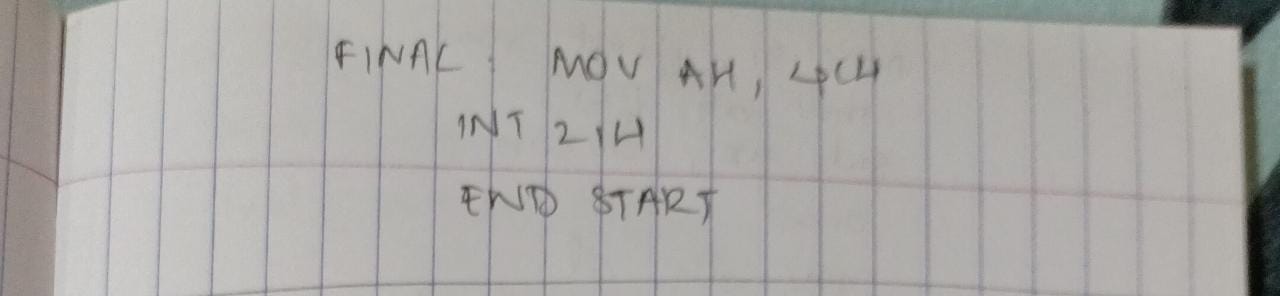 FINAL : MOV AH, 4CH
INT 21H
END START